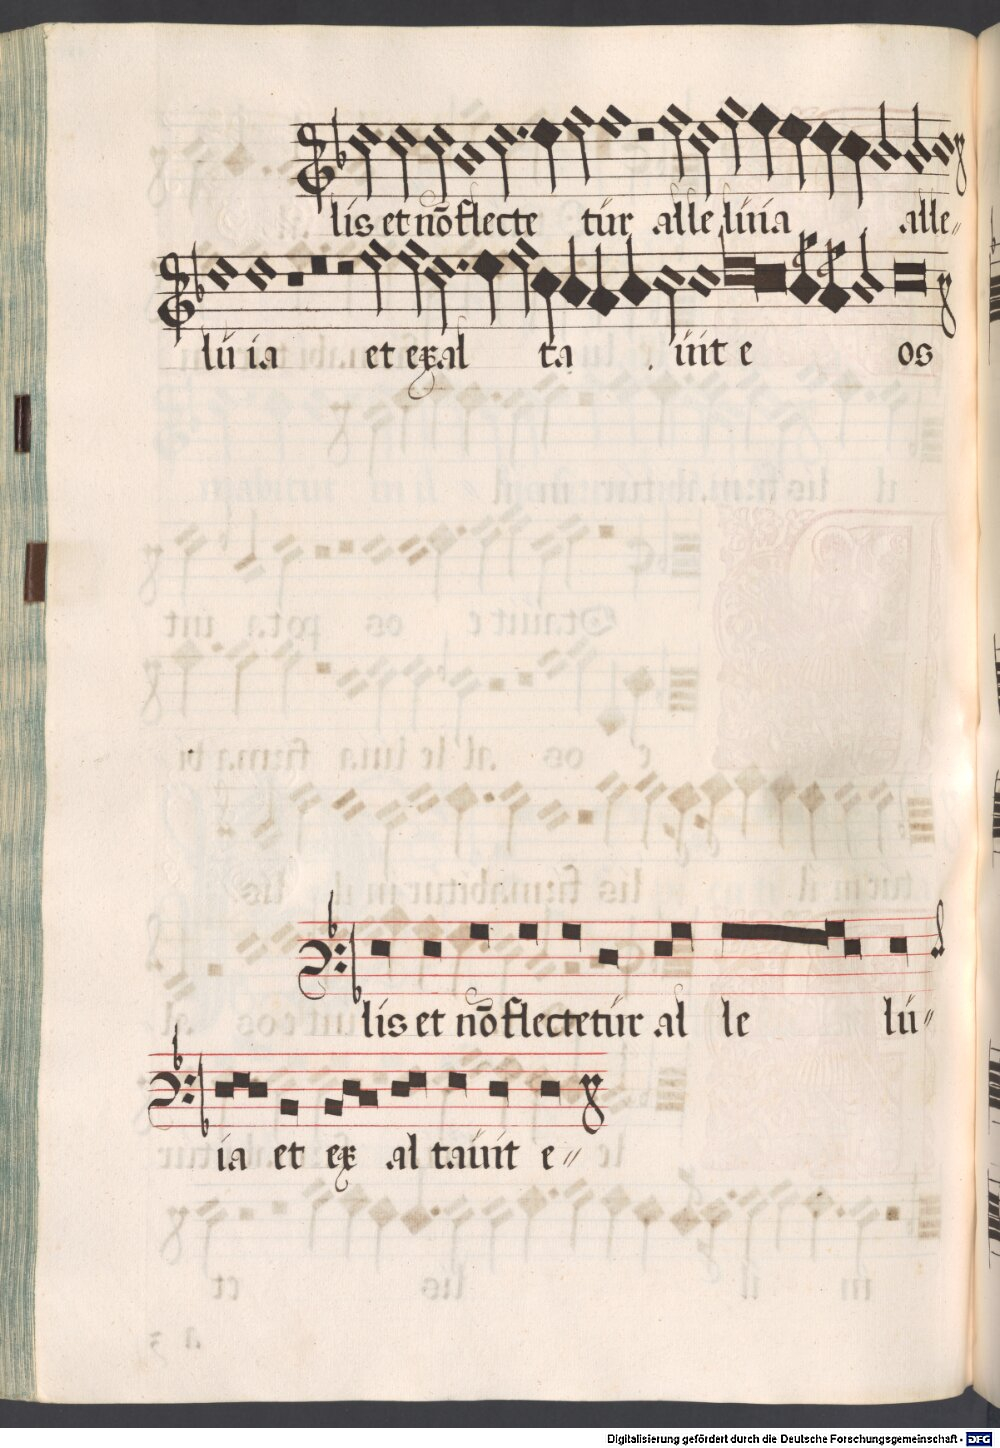 lis et nō flecte tur alle luia alle„
lu ia et exal ta uit e os
lis et nō flectetur al le lu„
ia et ex al tauit e„
Digitalisierung gefördert durch die Deutsche Forschungsgemeinschaft - DFG